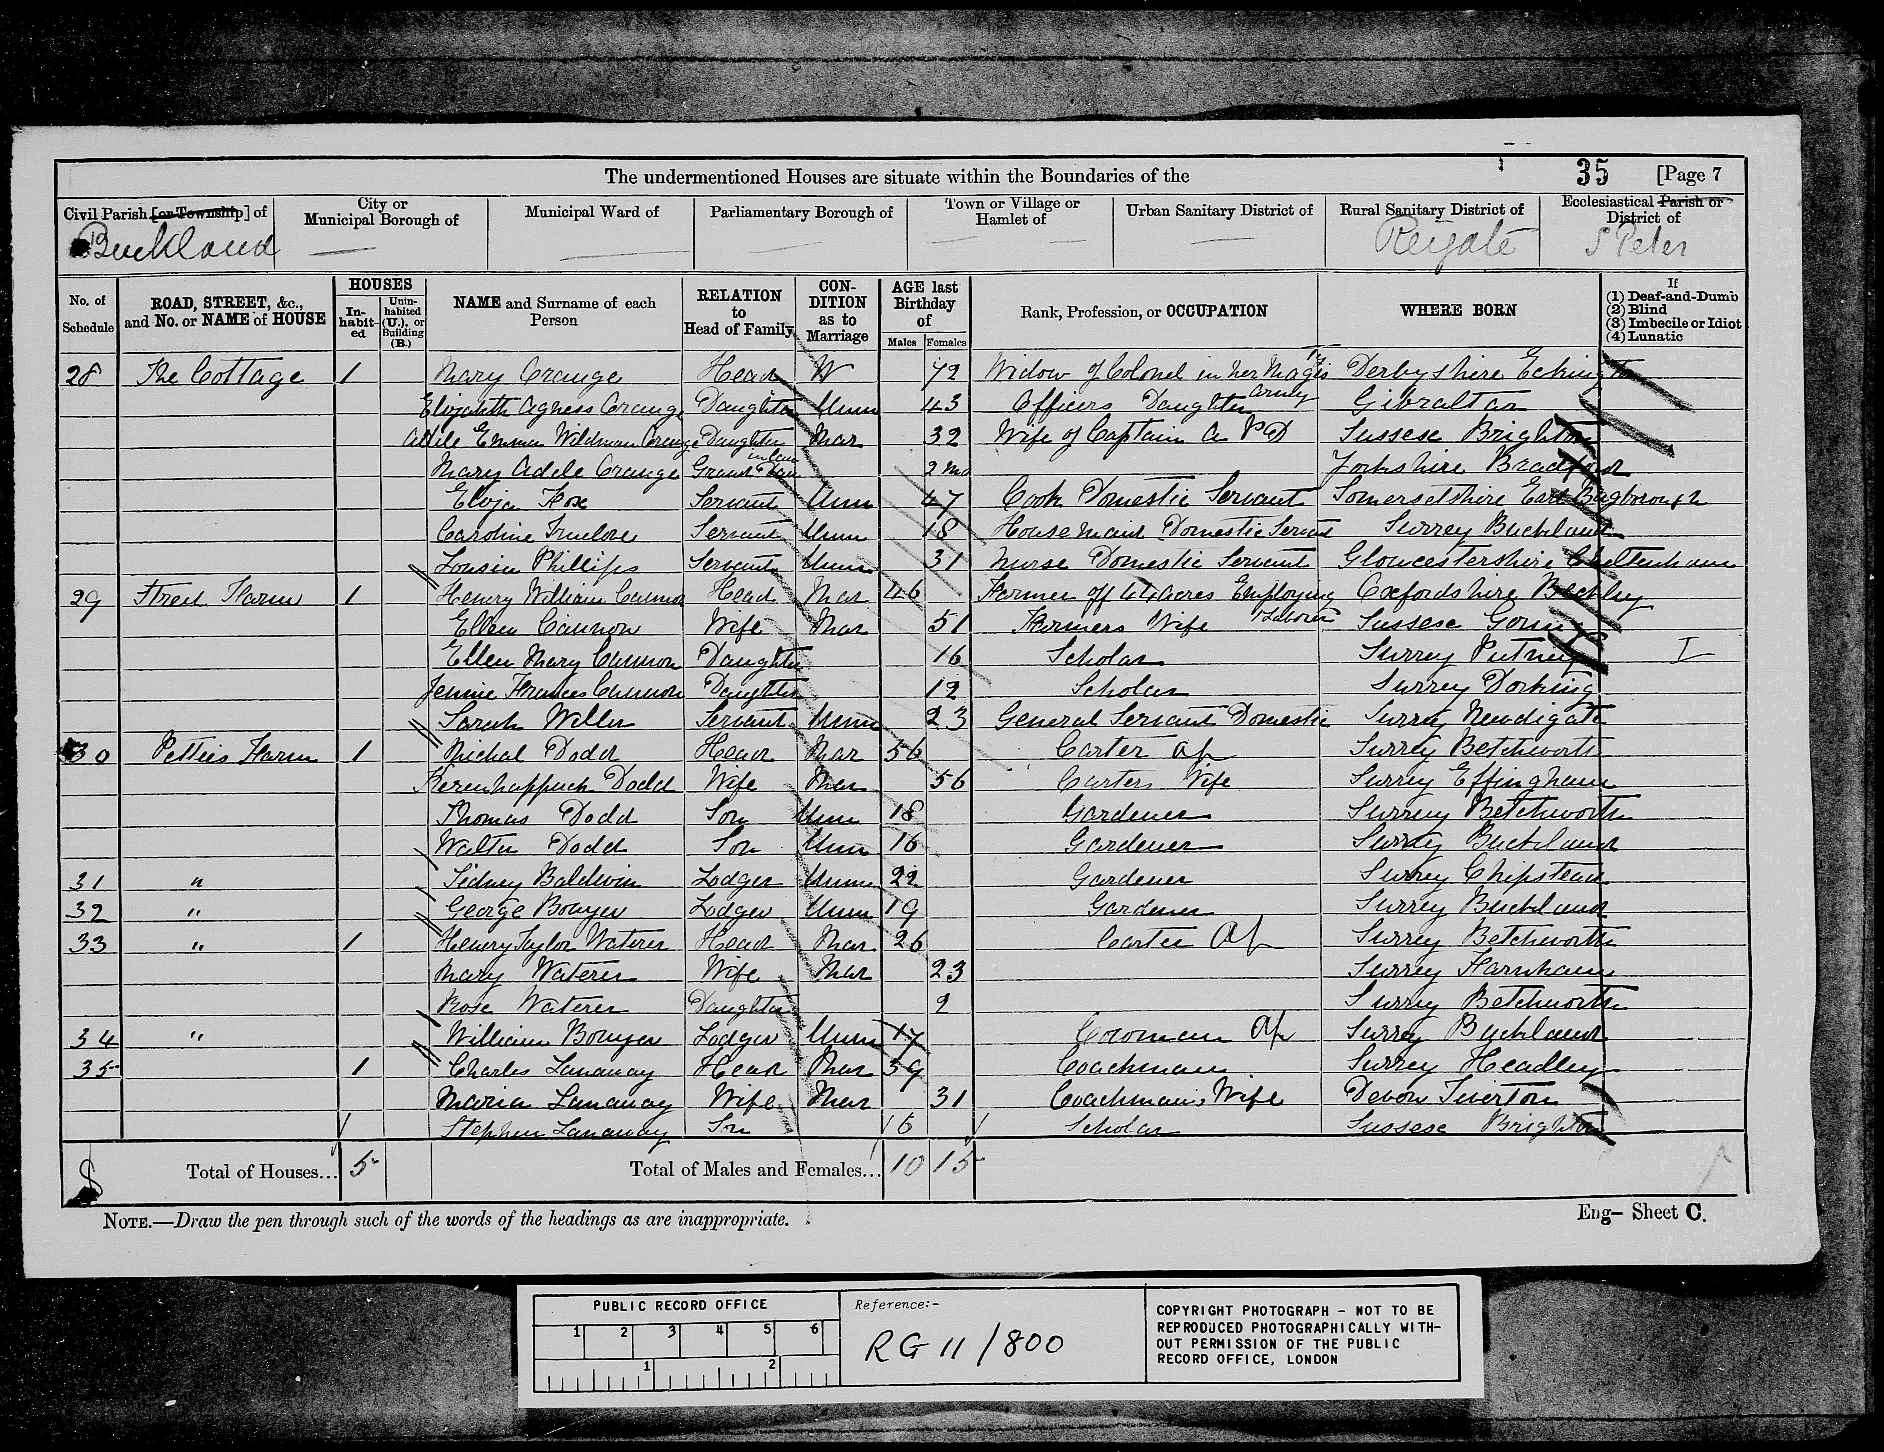 The undermentioned Houses are situate within the Boundaries of the 35 [Page 7
Civil Parish [or Township] of
Buckland
City or Municipal Borough of
—
Municipal Ward of
—
Parliamentary Borough of
—
Town or Village or Hamlet of
—
Urban Sanitary District of
—
Rural Sanitary District of
Reigate
Ecclesiastical Parish or District of
S Peter
No. of Schedule
ROAD, STREET, &c., and No. or NAME of HOUSE
HOUSES
In-habit-ed
Unin-habited (U.), or Building (B.)
NAME and Surname of each Person
RELATION to Head of Family
CON-DITION as to Marriage
AGE last Birthday of
Males Females
Rank, Profession, or OCCUPATION
WHERE BORN
If
(1) Deaf-and-Dumb
(2) Blind
(3) Imbecile or Idiot
(4) Lunatic
28 The Cottage 1 Mary Orange Head W 72 Widow of Colonel in Her Magis Army Derbyshire Eckington
Elizabeth Agness Orange Daughter Unm 43 Officers Daughter Gibraltar
Adele Emma Wildman Orange Daughter in law Mar 32 Wife of Captain A P D Sussex Brighton
Mary Adele Orange Grand Daur 2 Mo Yorkshire Bradford
Eliza Fox Servant Unm 47 Cook Domestic Servant Somersetshire East
Caroline Truelove Servant Unm 18 House Maid Domestic Servant Surrey Buckland
Louisa Phillips Servant Unm 31 Nurse Domestic Servant Gloucestershire Cheltenham
29 Street Farm 1 Henry William Cannon Head Mar 46 Farmer off Acres Employing Laborers Oxfordshire Beckley
Ellen Cannon Wife Mar 51 Farmers Wife Sussex Goring
Ellen Mary Cannon Daughter 16 Scholar Surrey Putney I
Jennie Frances Cannon Daughter 12 Scholar Surrey Dorking
Sarah Weller Servant Unm 23 General Servant Domestic Surrey Newdigate
30 Petties Farm 1 Michal Dodd Head Mar 56 Carter Ap Surrey Betchworth
Kerenhappuch Dodd Wife Mar 56 Carters Wife Surrey Effingham
Thomas Dodd Son Unm 18 Gardener Surrey Betchworth
Walter Dodd Son Unm 16 Gardener Surrey Buckland
31 " Sidney Baldwin Lodger Unm 22 Gardener Surrey Chipstead
32 " George Bowyer Lodger Unm 19 Gardener Surrey Buckland
33 " 1 Henry Taylor Waterer Head Mar 26 Carter Ap Surrey Betchworth
Mary Waterer Wife Mar 23 Surrey Farnham
Rose Waterer Daughter 2 Surrey Betchworth
34 " William Bowyer Lodger Unm 17 Cowman Ap Surrey Buckland
35 1 Charles Lanaway Head Mar 39 Coachman Surrey Headley
Maria Lanaway Wife Mar 31 Coachmans Wife Devon Tiverton
Stephen Lanaway Son 6 Scholar Sussex Brighton
Total of Houses... 5 Total of Males and Females... 10 15
NOTE.—Draw the pen through such of the words of the headings as are inappropriate.
Eng– Sheet C.
PUBLIC RECORD OFFICE
1 2 3 4 5 6
1 2
Reference:-
RG 11/800
COPYRIGHT PHOTOGRAPH - NOT TO BE
REPRODUCED PHOTOGRAPHICALLY WITH-
OUT PERMISSION OF THE PUBLIC
RECORD OFFICE, LONDON